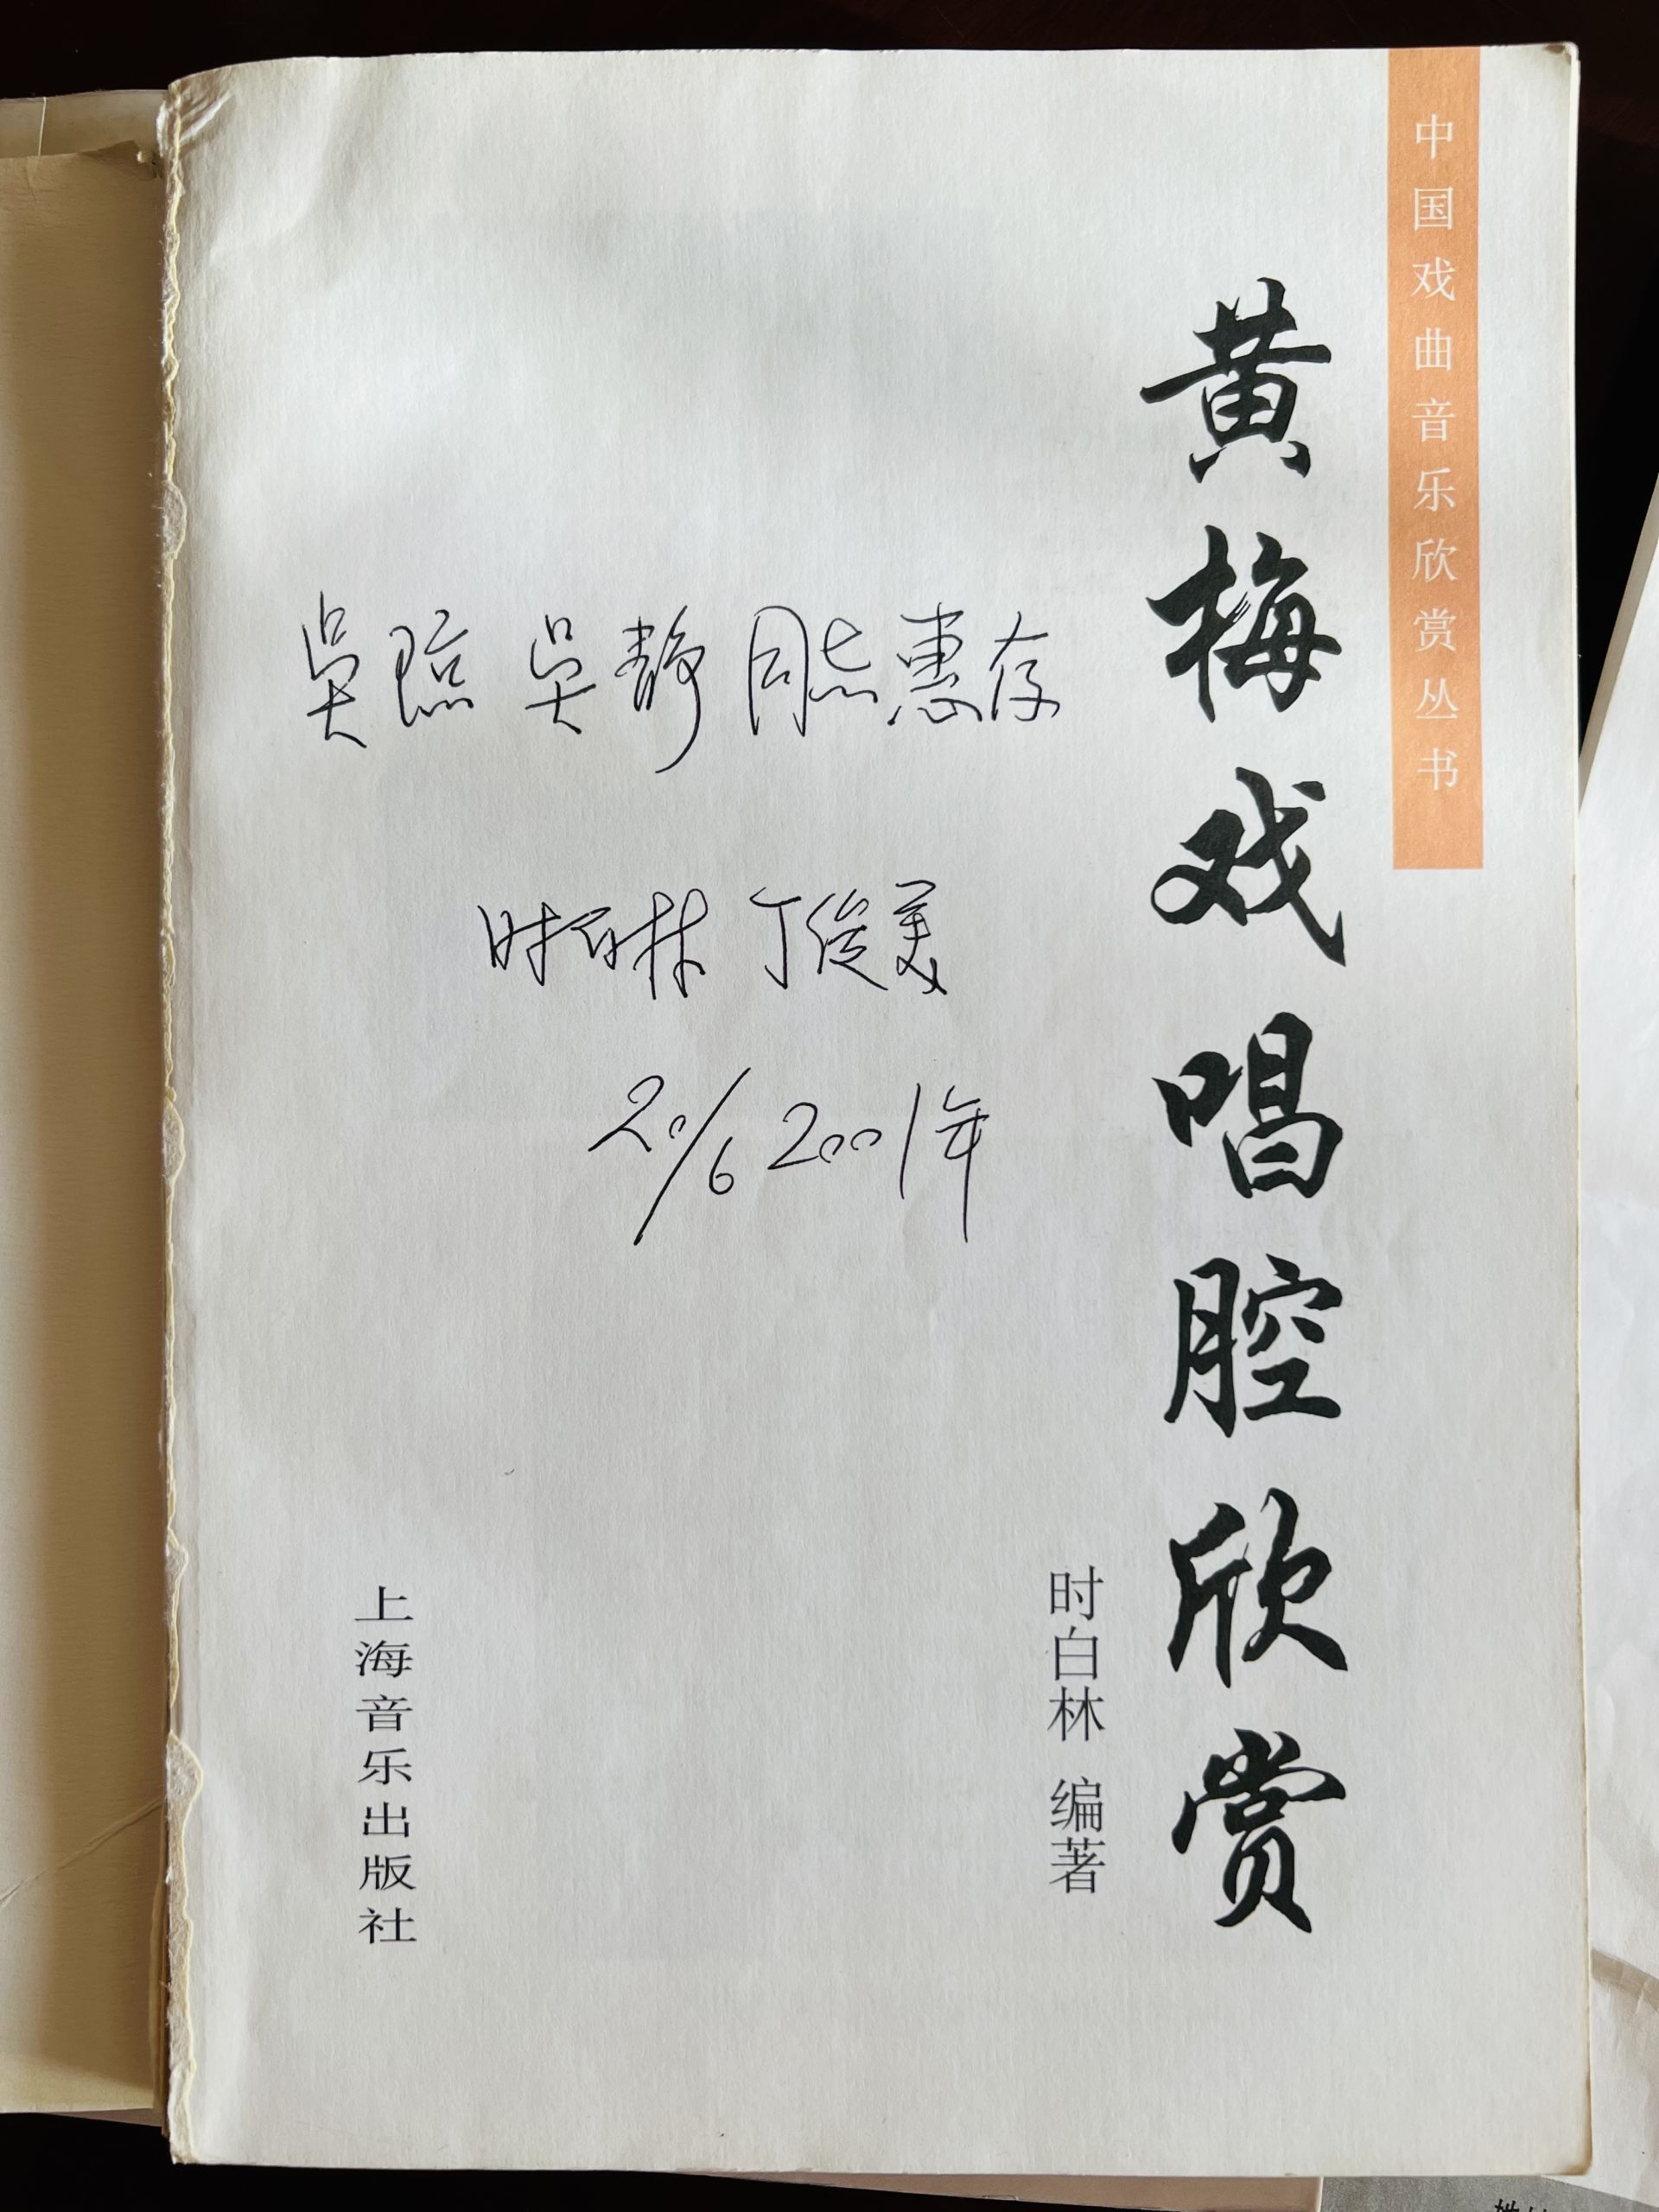 中国戏曲音乐欣赏丛书
黄梅戏唱腔欣赏
时白林 编著
吴琼 吴静 同志惠存
时白林 丁俊美
20/6 2001年
上海音乐出版社